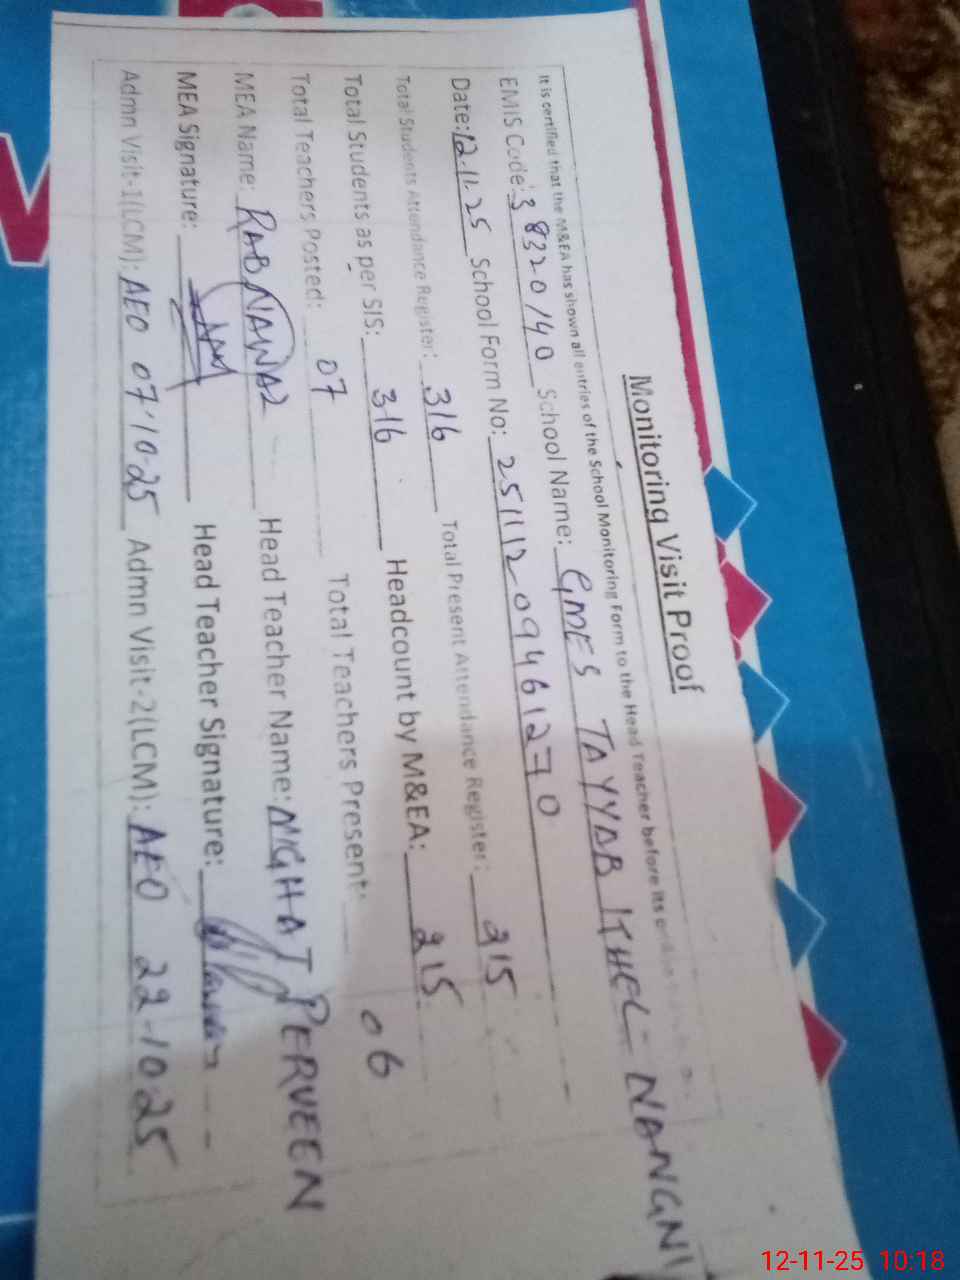 Monitoring Visit Proof
It is certified that the M&EA has shown all entries of the School Monitoring Form to the Head Teacher before its
EMIS Code: 38320140 School Name: GMES TAYYAB NANGNI
Date: 12.11.25 School Form No: 25111209461270
Total Students Attendance Register: 316 Total Present Attendance Register: 215
Total Students as per SIS: 316 Headcount by M&EA: 215
Total Teachers Posted: 07 Total Teachers Present: 06
MEA Name: RAB NAWAZ Head Teacher Name: NIGHAT PERVEEN
MEA Signature: Head Teacher Signature:
Admn Visit-1(LCM): AEO 07-10-25 Admn Visit-2(LCM): AEO 22-10-25
12-11-25 10:18